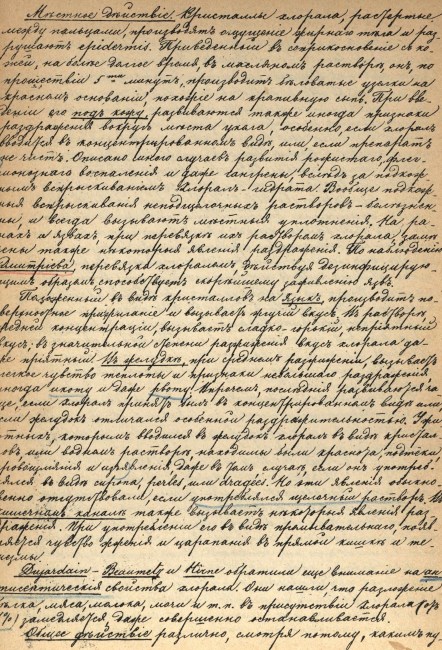 Мѣстное дѣйствіе. Кристаллы хлорала, растертые
между пальцами, производятъ ощущеніе жирнаго тѣла и раз
рушаютъ epidermis. Приведенный въ соприкосновеніе съ ко
жей, на болѣе долгое время, въ масляномъ растворѣ, онъ, по
прошествіи 5ти минутъ, производитъ бѣловатые узелки на
красномъ основаніи, похожіе на крапивную сыпь. При вве
деніи его подъ кожу, развиваются также иногда признаки
раздраженія вокругъ мѣста укола, особенно если хлоралъ
вводится въ концентрированномъ видѣ, или, если препаратъ
не чистъ. Описано много случаевъ развитія рожистаго, флег
монознаго воспаленія и даже гангрены, вслѣдъ за подкож
нымъ вспрыскиваніемъ хлоралъ-гидрата. Вообще подкож
ныя вспрыскиванія нещелочныхъ растворовъ - болѣзнен
ны, и всегда вызываютъ мѣстныя уплотненія. На ра
нахъ и язвахъ, при перевязкѣ ихъ растворомъ хлорала, замѣ
чены также нѣкоторыя явленія раздраженія. По наблюденію
Дмитріева, перевязка хлораломъ, дѣйствуя дезинфицирую
щимъ образомъ, способствуетъ скорѣйшему заживленію язвъ.
Положенный въ видѣ кристалловъ на языкъ, производитъ по
верхностное прижиганіе и вызываетъ жгучій вкусъ. Въ растворѣ
средней концентраціи, вызываетъ сладко-горькій, непріятный
вкусъ; въ значительной степени разжиженія вкусъ хлорала да
же пріятный. Въ желудкѣ, при среднемъ разжиженіи, вызываетъ
легкое чувство теплоты и признаки небольшаго раздраженія
иногда икоту и даже рвоту. Впрочемъ, послѣднія развиваются ча
ще, если хлоралъ принятъ былъ въ концентрированномъ видѣ или
если желудокъ отличался особенной раздражительностью. У жи
вотныхъ, которымъ вводился въ желудокъ хлоралъ въ видѣ кристал
ловъ, или водныхъ растворовъ, находимы были краснота, подтеки,
кровоизліянія и изъязвленія даже въ томъ случаѣ, если онъ употреб
лялся въ видѣ сиропа, perles, или dragées. Но эти явленія обыкно
венно отсутствовали, если употреблялся щелочный растворъ. Въ
кишечномъ каналѣ также вызываетъ нѣкоторыя явленія раз
драженія. При употребленіи его въ видѣ промывательнаго, появ
ляется чувство жженія и царапанія въ прямой кишкѣ и те
незмы.
Dujardain-Beaumetz и Hirne обратили еще вниманіе на ан
тисептическія свойства хлорала. Они нашли что разложеніе
бѣлка, мяса, молока, мочи и т. п. въ присутствіи хлорала (
%) замедляется, даже совершенно останавливается.
Общее дѣйствіе различно, смотря потому, какимъ пу